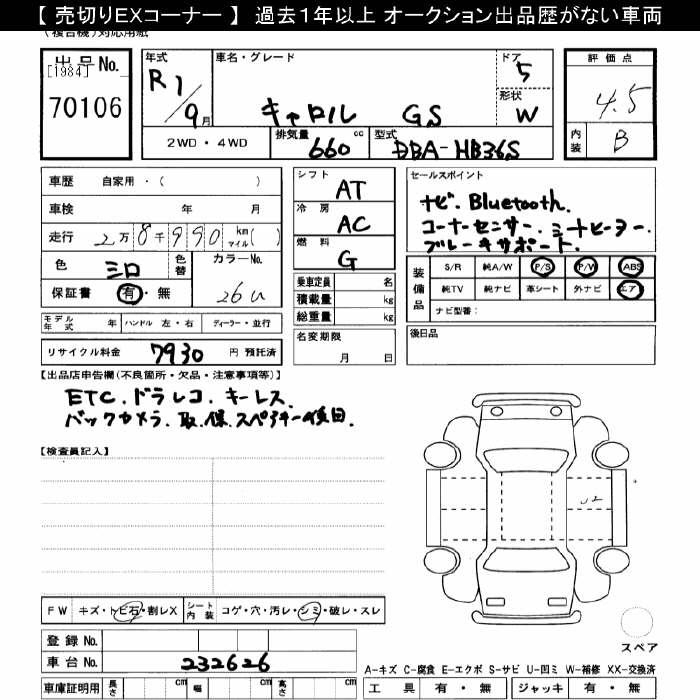 【 売切りEXコーナー 】 過去1年以上 オークション出品歴がない車両
(複合機)対応用紙
出品No.
[1984]
70106
年式
R1/9月
車名・グレード
キャロル GS
ドア
5
形状
W
評価点
4.5
内装
B
2WD・4WD
排気量
660 cc
型式
DBA-HB36S
車歴 自家用・( )
車検 年 月
走行 2万8千990 km マイル( )
色
シロ
色替
カラーNo.
26U
保証書 有・無
シフト
AT
冷房
AC
燃料
G
乗車定員 名
積載量 kg
総重量 kg
セールスポイント
ナビ. Bluetooth.
コーナーセンサー. シートヒーター.
ブレーキサポート.
装備品
S/R 純A/W P/S P/W ABS
純TV 純ナビ 革シート 外ナビ エア
ナビ型番:
モデル年式 年 ハンドル 左・右 ディーラー・並行
名変期限
月 日
後日品
リサイクル料金 7930 円 預託済
【出品店申告欄(不良箇所・欠品・注意事項等)】
ETC. ドラレコ. キーレス.
バックカメラ. 取.保.スペアキー後日.
【検査員記入】
U2
FW キズ・トビ石・割レX
シート内装 コゲ・穴・汚レ・シミ・破レ・スレ
登録No.
車台No. 232626
スペア
A-キズ C-腐食 E-エクボ S-サビ U-凹ミ W-補修 XX-交換済
車庫証明用 長さ cm 幅 cm 高さ cm
工具 有・無 ジャッキ 有・無